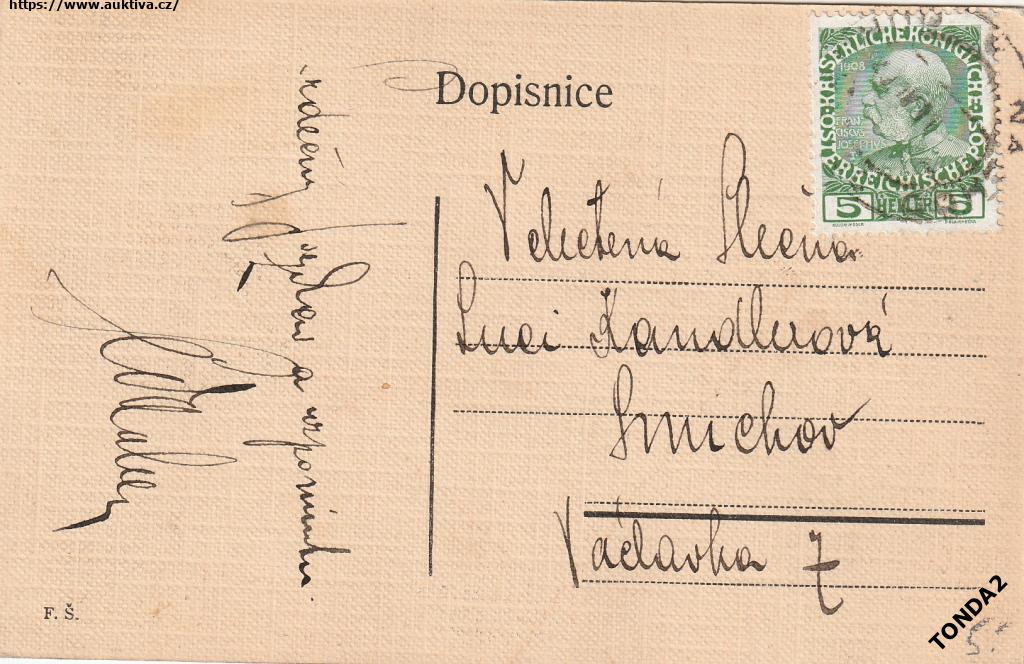 https://www.auktiva.cz/
Dopisnice
KAISERLICHE KÖNIGLICHE ÖSTERREICHISCHE POST
1908
FRAN
CISCUS
JOSEPHUS
5 HELLER 5
Velectěná Slečna
Luci Kandlerová
Smíchov
Václavka 7
Srdečný pozdrav a vzpomínku
F. Š.
TONDA2